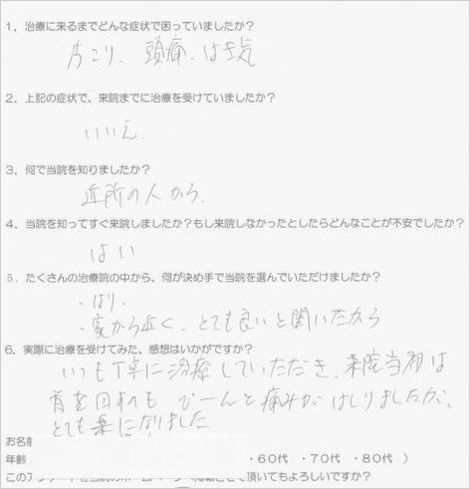 1．治療に来るまでどんな症状で困っていましたか？
肩こり、頭痛、はき気
2．上記の症状で、来院までに治療を受けていましたか？
いいえ．
3．何で当院を知りましたか？
近所の人から．
4．当院を知ってすぐ来院しましたか？もし来院しなかったとしたらどんなことが不安でしたか？
はい
5．たくさんの治療院の中から、何が決め手で当院を選んでいただけましたか？
・はり、
・家から近く、とても良いと聞いたから
6．実際に治療を受けてみた、感想はいかがですか？
いつも丁寧に治療していただき、来院当初は
首を回すのも びーんと痛みがはしりましたが、
とても楽になりました
お名前
年齢 ・60代 ・70代 ・80代 ）
頂いてもよろしいですか？